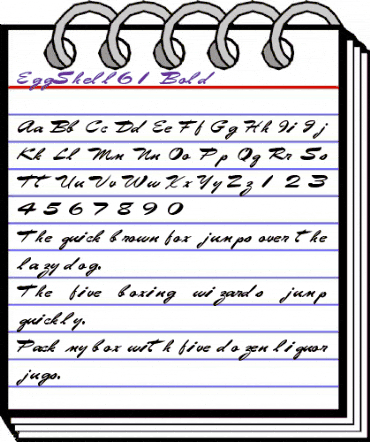 EggShell61 Bold
Aa Bb Cc Dd Ee Ff Gg Hh Ii Jj
Kk Ll Mm Nn Oo Pp Qq Rr Ss
Tt Uu Vv Ww Xx Yy Zz 1 2 3
4 5 6 7 8 9 0
The quick brown fox jumps over the
lazy dog.
The five boxing wizards jump
quickly.
Pack my box with five dozen liquor
jugs.